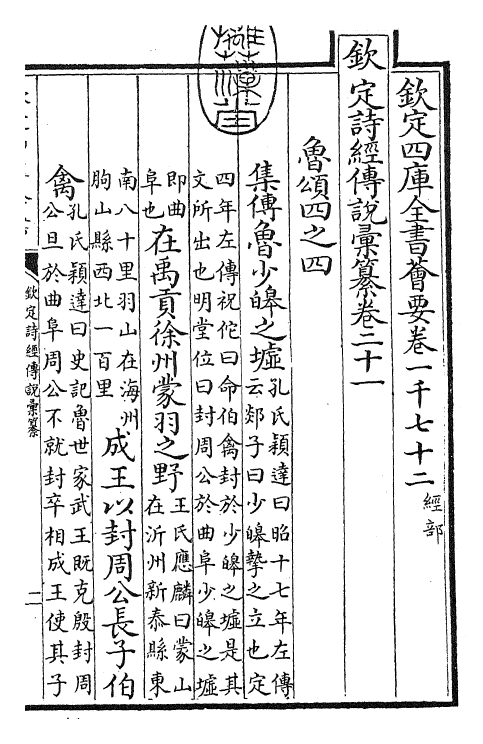 欽定四庫全書薈要卷一千七十二 經部
欽定詩經傳說彙纂卷二十一
魯頌四之四
集傳魯少皞之墟
孔氏穎達曰昭十七年左傳
云郯子曰少皞摯之立也定
四年左傳祝佗曰命伯禽封於少皞之墟是其
文所出也明堂位曰封周公於曲阜少皞之墟
即曲
阜也
在禹貢徐州蒙羽之野
王氏應麟曰蒙山
在沂州新泰縣東
南八十里羽山在海州
朐山縣西北一百里
成王以封周公長子伯
禽
孔氏穎達曰史記魯世家武王既克殷封周
公旦於曲阜周公不就封卒相成王使其子
欽定詩經傳說彙纂
二